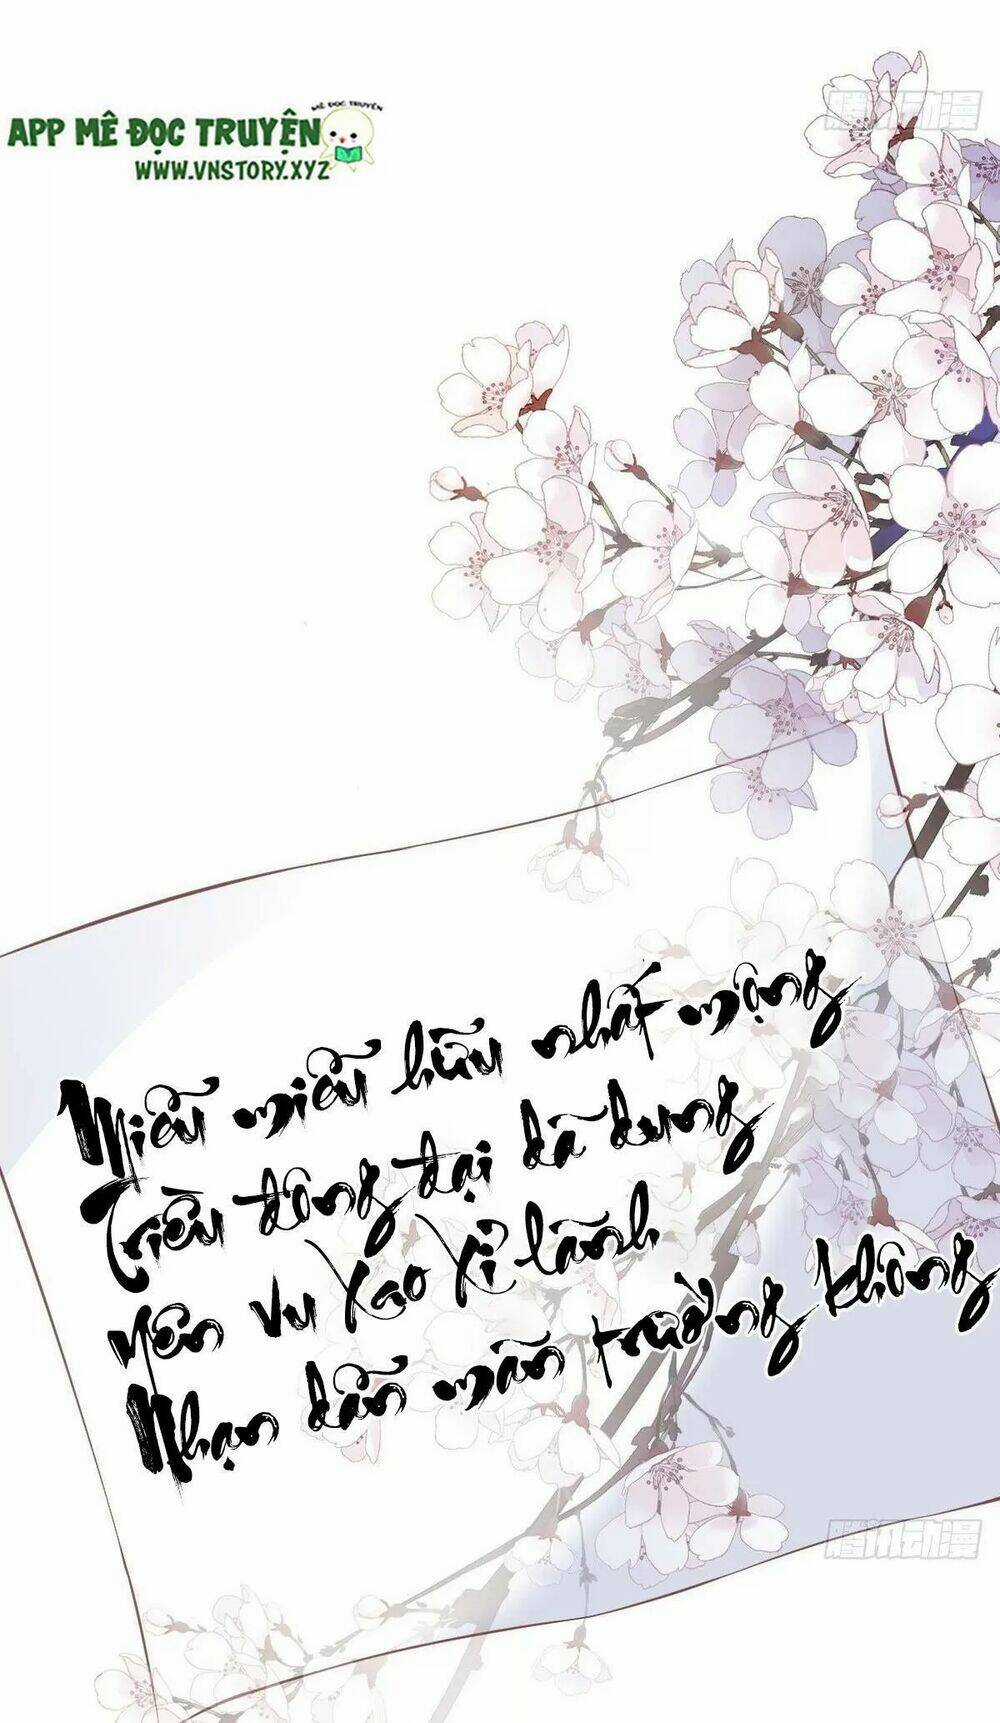 MÊ ĐỌC TRUYỆN
APP MÊ ĐỌC TRUYỆN
WWW.VNSTORY.XYZ
腾讯动漫
Miễu miễu hữu nhất mộng
Triều đông đại dã dung
Yên vu xao xỉ lãnh
Nhạn dẫn mãn trường không
腾讯动漫